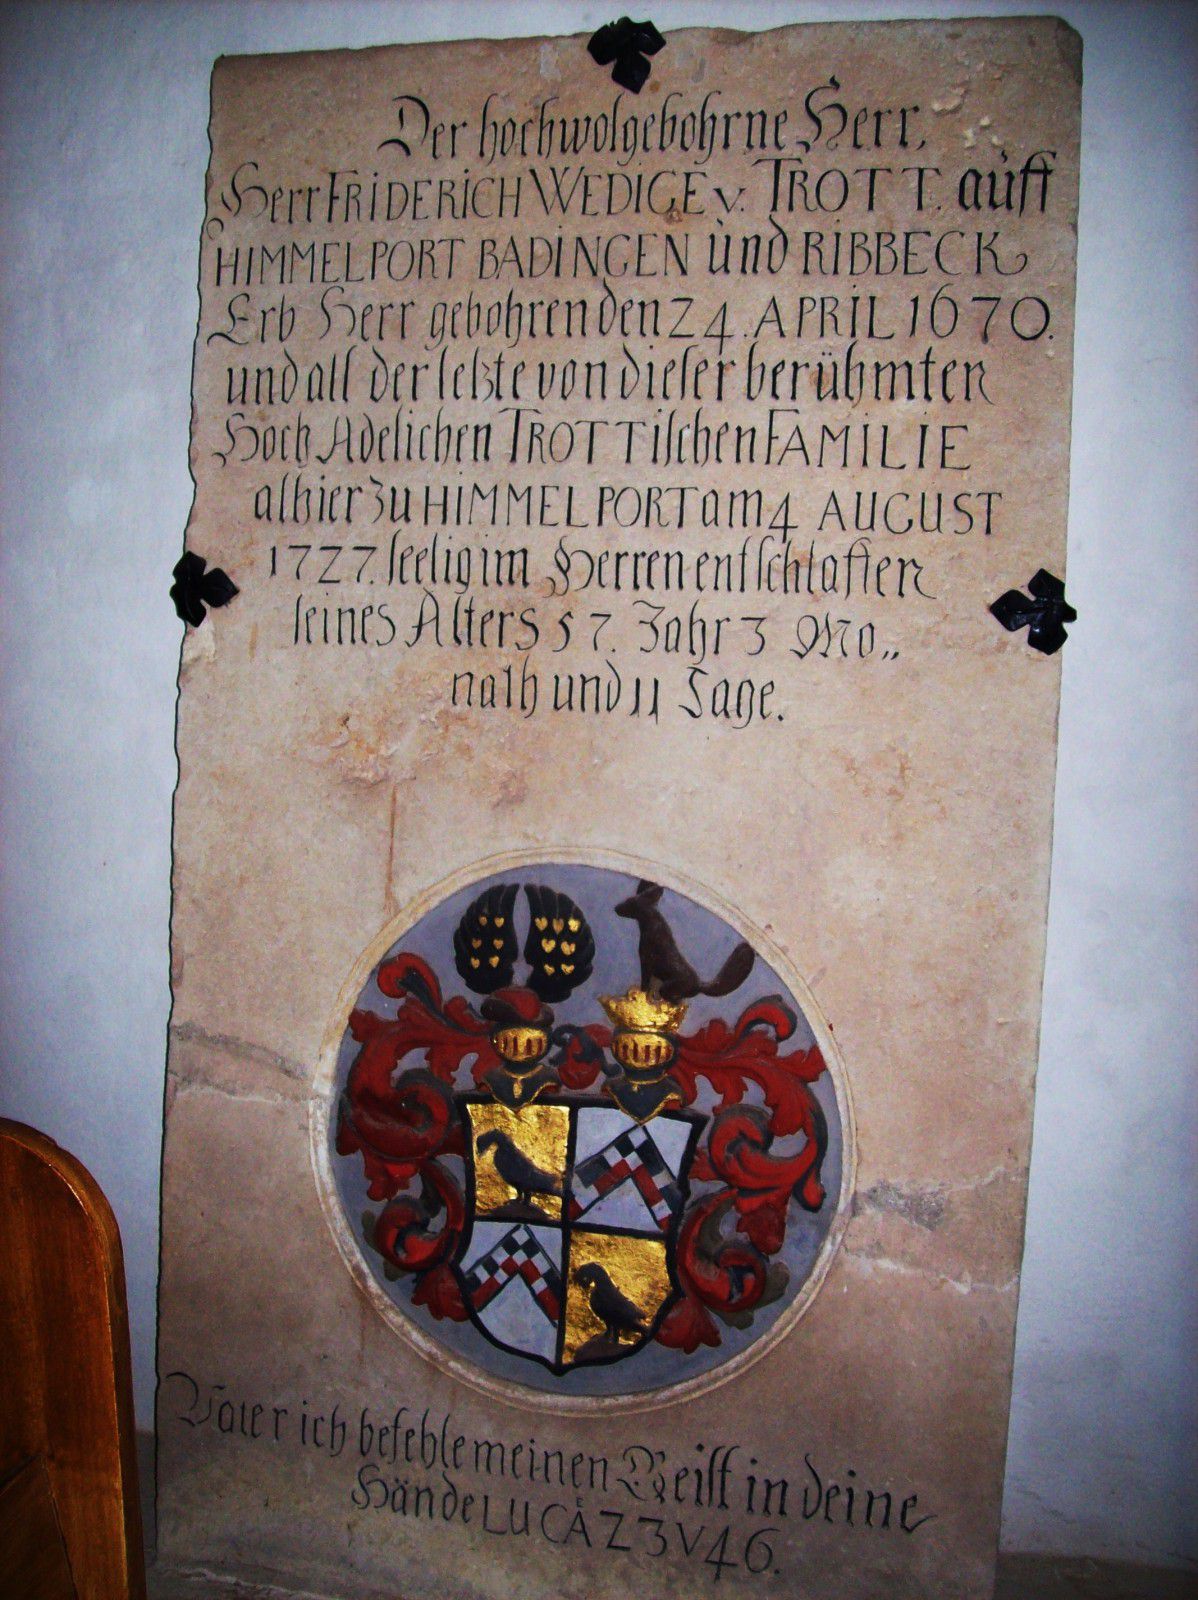 Der hochwolgebohrne Herr,
Herr FRIDERICH WEDIGE v. TROTT. aùff
HIMMELPORT BADINGEN ùnd RIBBECK
Erb Herr gebohren den 24. APRIL 1670.
und all der letzte von dieser berühmten
Hoch Adelichen TROTTischen FAMILIE
alhier zu HIMMELPORT am 4 AUGUST
1727. seelig im Herren entschlaffen
seines Alters 57. Jahr 3 Mo„
nath und 11 Tage.
Vater ich befehle meinen Geist in deine
Hände LUCÄ Z3 V 46.